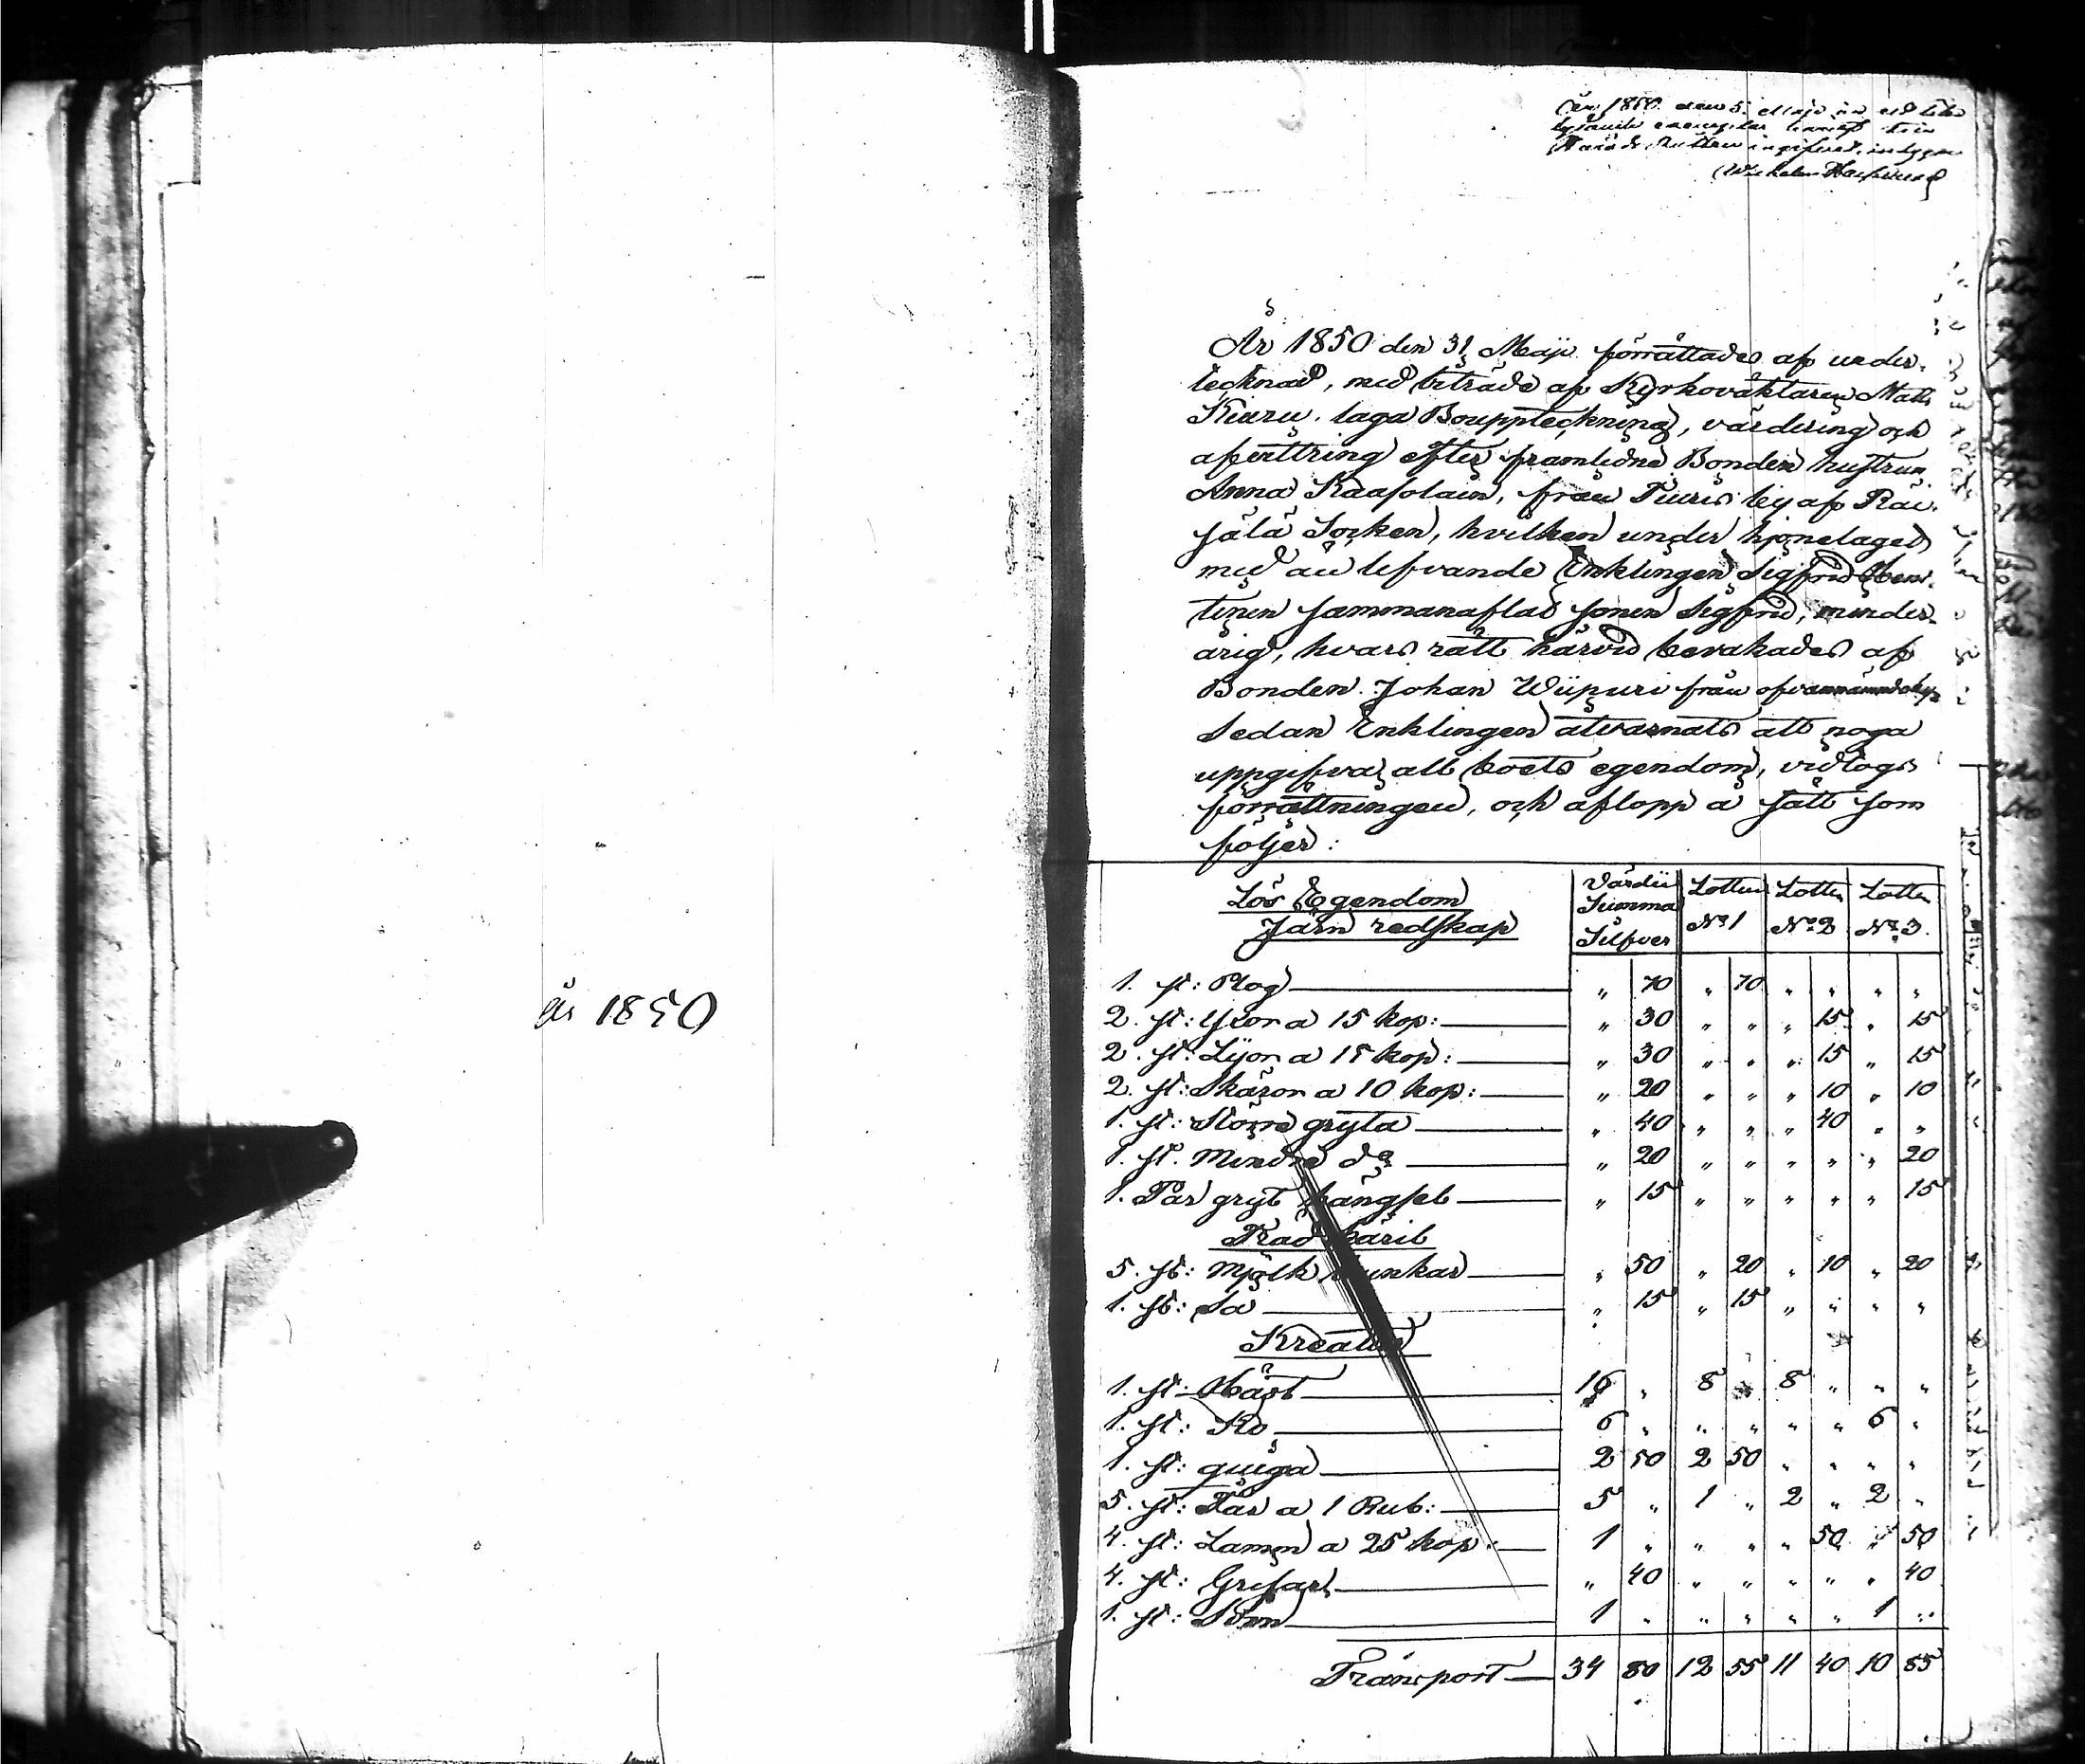 år 1850
År 1850 den 31 Maji förrättades af under-
tecknad, med biträde af Kyrkoväktaren Matts
Kiuru laga Bouppteckning, värdering och
afvittring efter framledne Bonden hustrun
Anna Kaasolain, från Tiuris by af Räi-
sälä Socken, hvilken under hjonelaget
med än lefvande Enklingen Sigfrid
sammanaflat sonen Sigfrid, minder-
årig, hvars rätt härvid bevakades af
Bonden Johan Wiipuri från ofvannämnde by
Sedan Enklingen åtvarnats att noga
uppgifva all boets egendom, vidtogs
förrättningen, och aflopp å sätt som
följer:
Lös Egendom
Järn redskap
Värdii Summa Silfver Lotten No 1 Lotten No 2 Lotten No 3.
1. st: Plog " 70 " 70 " " " "
2. st: Yxor a 15 kop: " 30 " " " 15 " 15
2. st: Lijor a 15 kop: " 30 " " " 15 " 15
2. st: Skäror a 10 kop: " 20 " " " 10 " 10
1. st: Större gryta " 40 " " " 40 " "
1. st. Mindre do " 20 " " " " " 20
1. Par gryt hängsel " 15 " " " " " 15
Träd käril
5. st: Mjölk bunkar " 50 " 20 " 10 " 20
1. st: Så " 15 " 15 " " " "
Kreatur
1. st: Häst 16 " 8 " 8 " " "
1. st: Ko 6 " " " " " 6 "
1. st: quiga 2 50 2 50 " " " "
5. st: Får a 1 Rub: 5 " 1 " 2 " 2 "
4. st: Lamm a 25 kop: 1 " " " " 50 " 50
4. st: Grisar " 40 " " " " " 40
1. st: 1 " " " " " 1 "
Transport 34 80 12 55 11 40 10 85